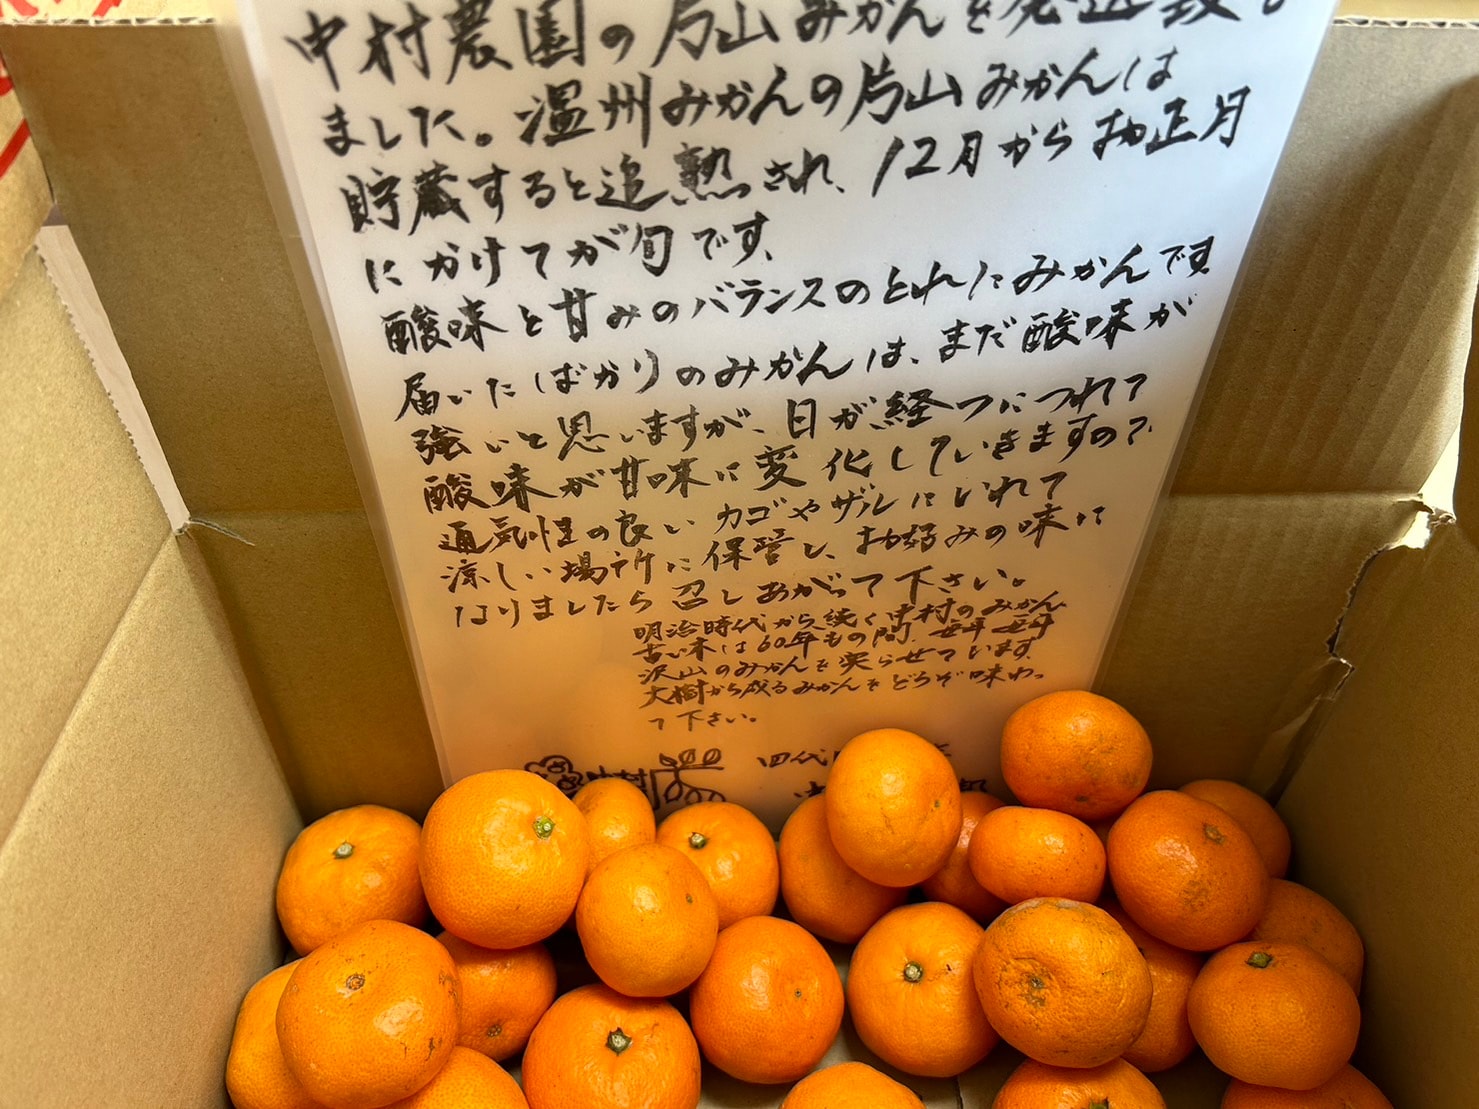 中村農園の片山みかんを発送致し
ました。温州みかんの片山みかんは
貯蔵すると追熟され、12月からお正月
にかけてが旬です、
酸味と甘みのバランスのとれたみかんです
届いたばかりのみかんは、まだ酸味が
強いと思いますが、日が経つにつれて
酸味が甘味に変化していきますので
通気性の良いカゴやザルにいれて
涼しい場所に保管し、お好みの味に
なりましたら召しあがって下さい。
明治時代から続く中村のみかん
古い木は60年もの間、毎年毎年
沢山のみかんを実らせています
大樹から成るみかんをどうぞ味わっ
て下さい。
中村
四代